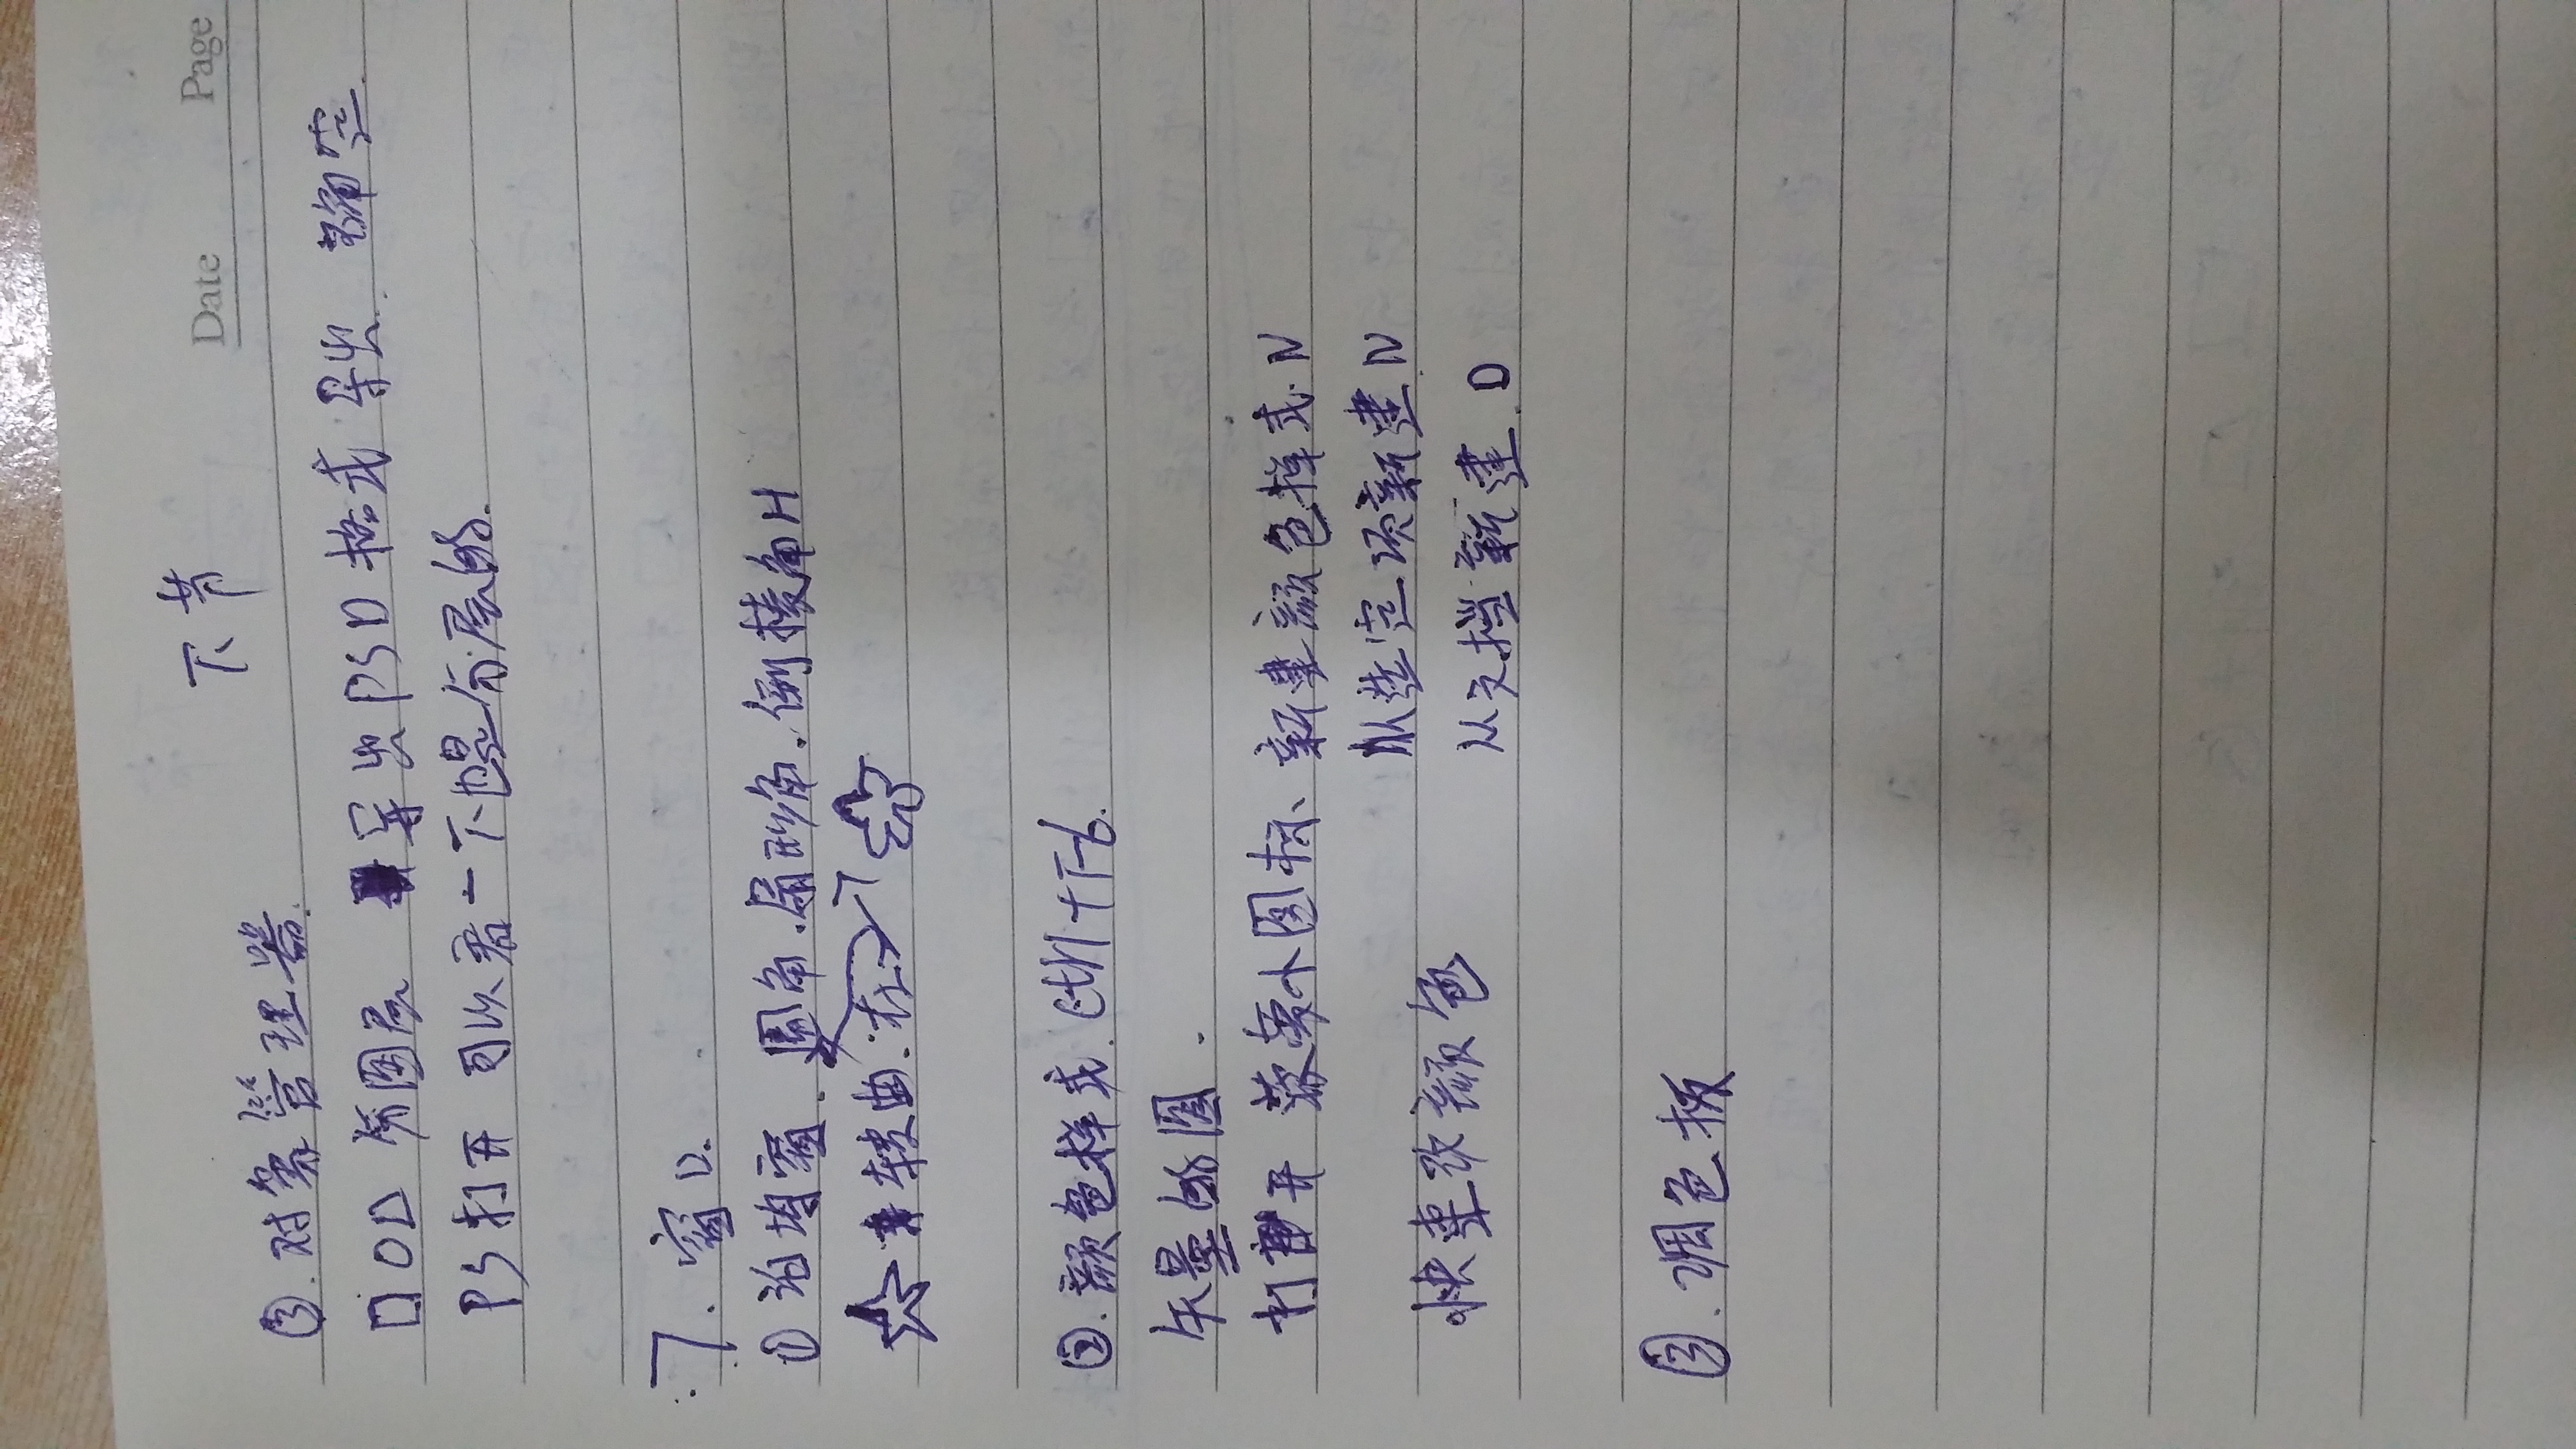 Date Page
下节
③.对象管理器.
口OD 新图层 导出PSD格式 导出. 镐空.
PS打开 可以看一下是分层的.
7. 窗口.
① 泊坞窗. 圆角.扇形角.倒棱角H
转曲:
②.颜色样式. Ctrl+F6.
矢量的图.
打开 小图标、新建颜色样式.N
从选定项新建N
快速改颜色
从文档新建.D
③.调色板